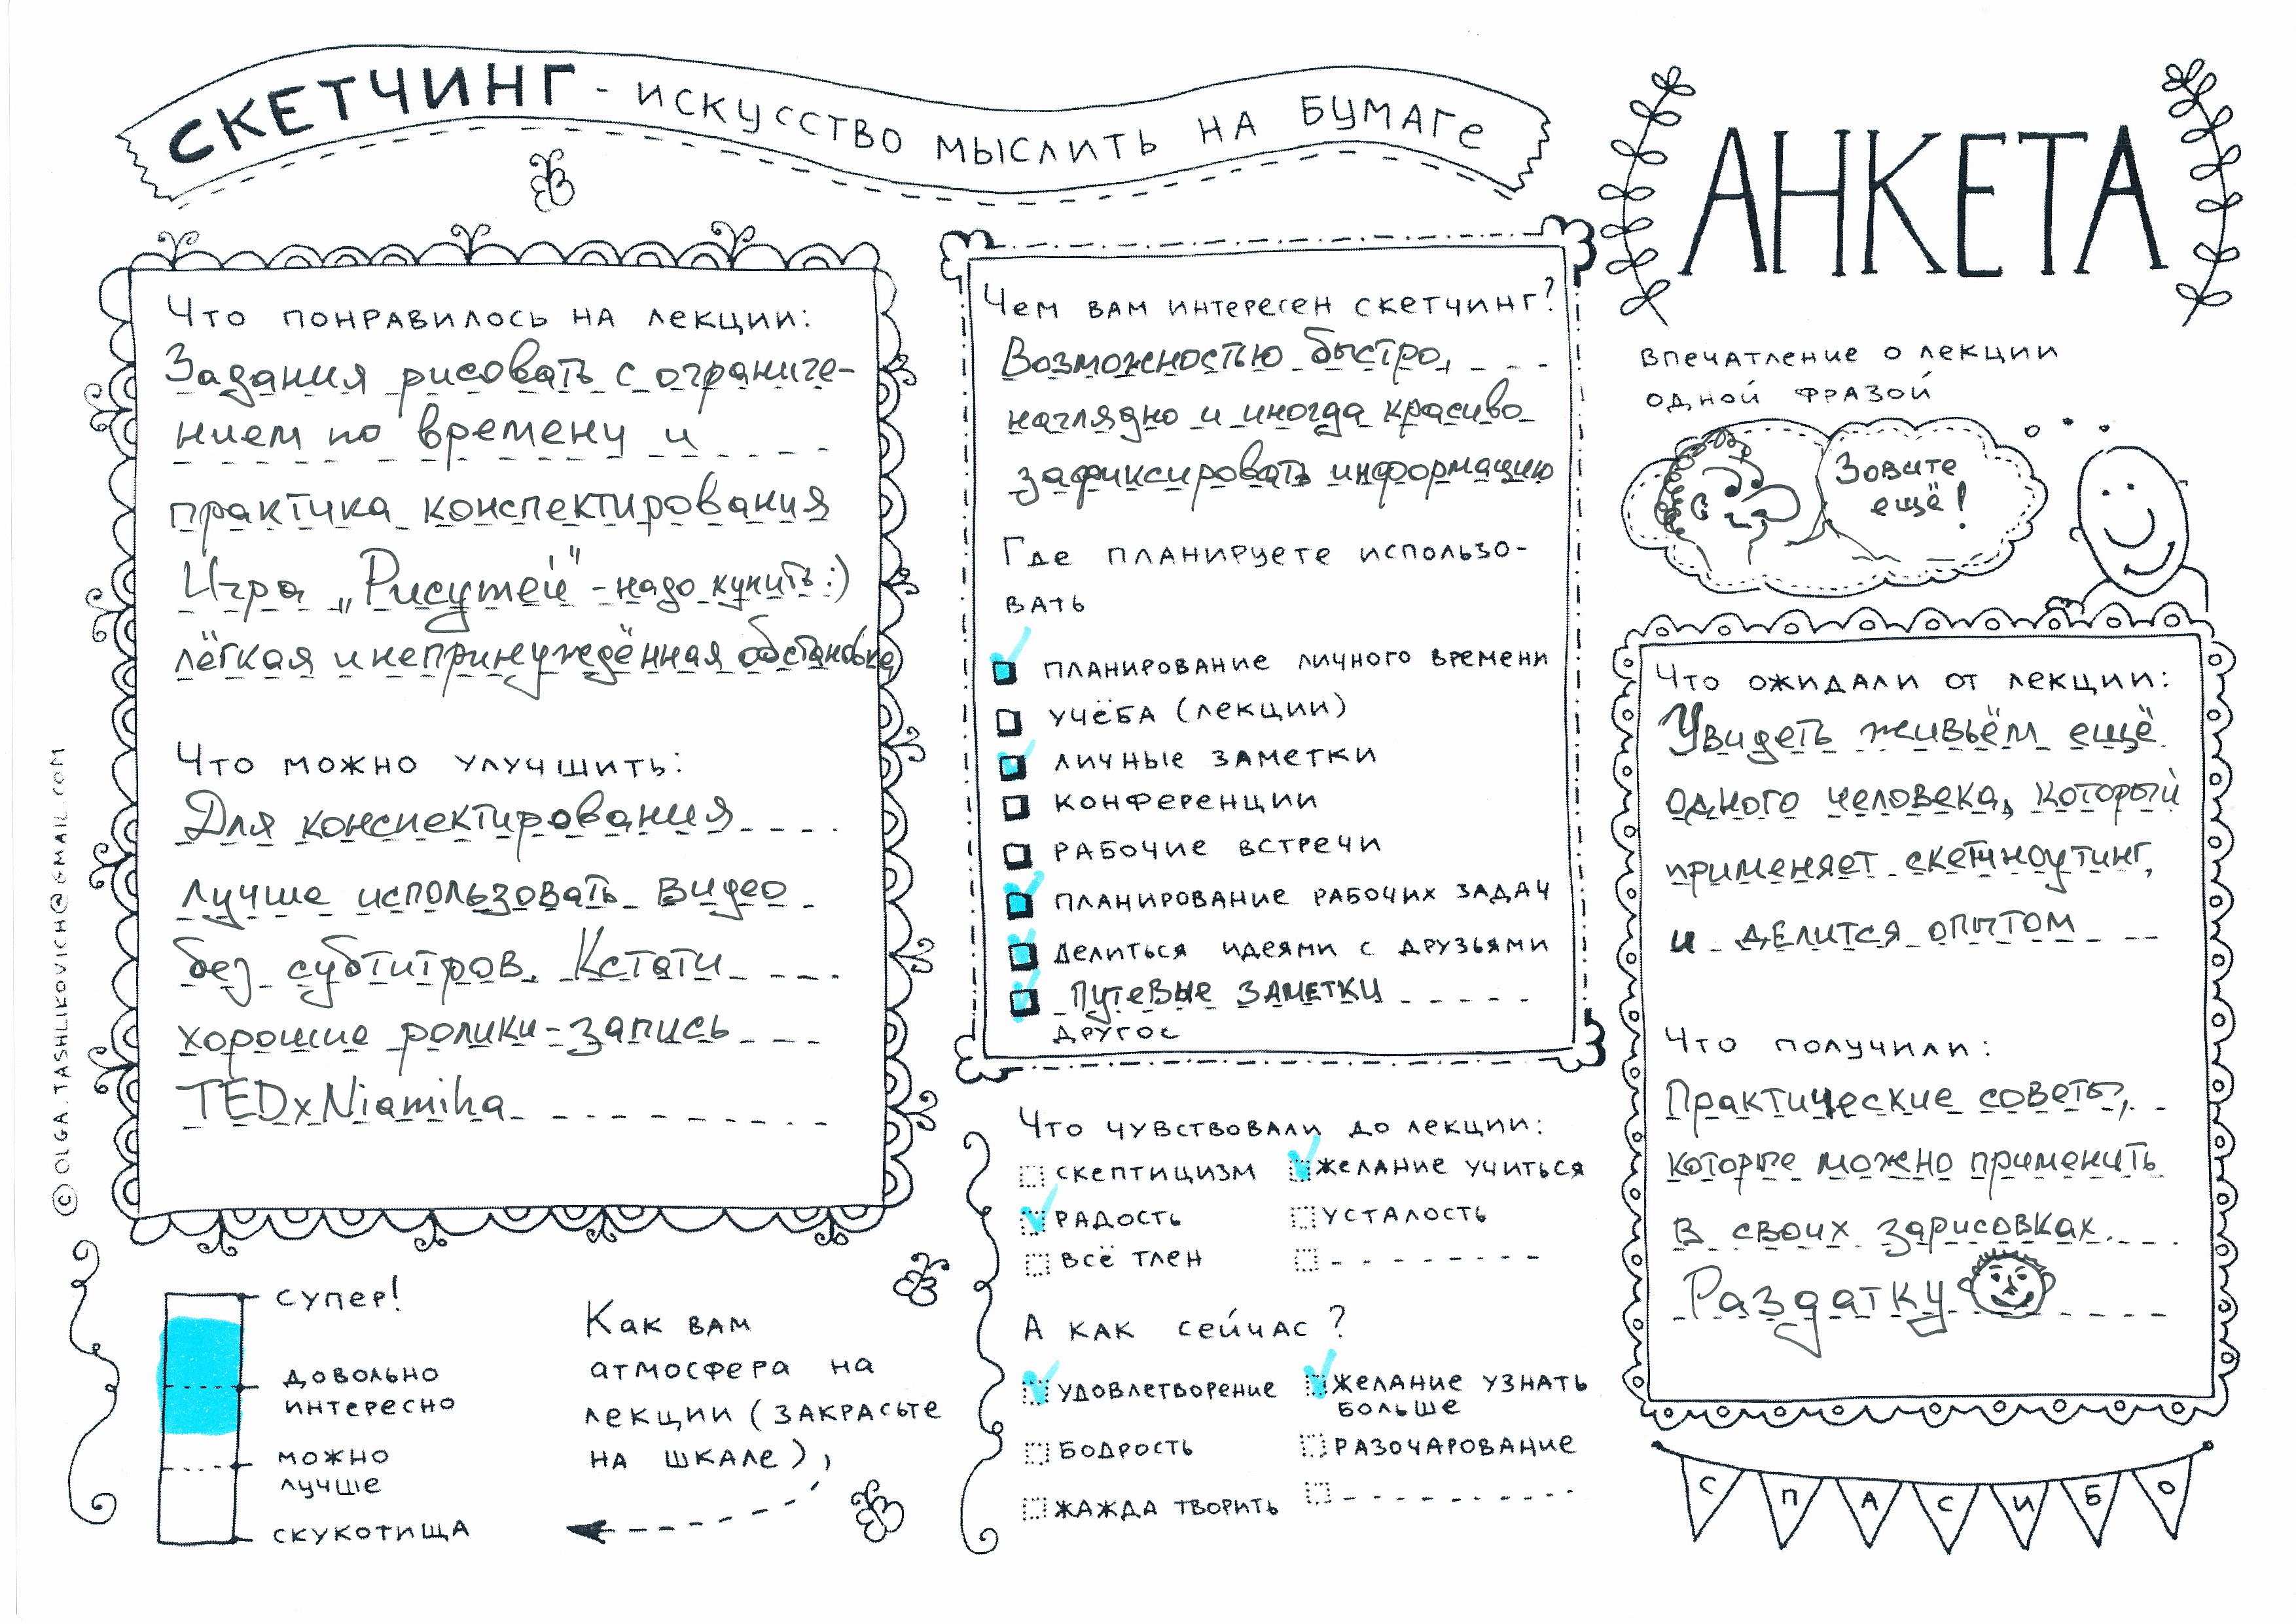 СКЕТЧИНГ - ИСКУССТВО МЫСЛИТЬ НА БУМАГЕ
АНКЕТА
Что понравилось на лекции:
Задания рисовать с ограниче-
нием по времену и
практика конспектирования
Игра „Рисутей" - надо купить :)
лёгкая и непринуждённая обстановка
Что можно улучшить:
Для конспектирования
лучше использовать видео
без субтитров. Кстати
хорошие ролики - запись
TEDxNiamiha
© OLGA.TASHLIKOVICH@GMAIL.COM
супер!
довольно
интересно
можно
лучше
скукотища
Как вам
атмосфера на
лекции (закрасьте
на шкале),
Чем вам интересен скетчинг?
Возможностью быстро,
наглядно и иногда красиво
зафиксировать информацию
Где планируете использо-
вать
планирование личного времени
учёба (лекции)
личные заметки
конференции
рабочие встречи
планирование рабочих задач
делиться идеями с друзьями
путевые заметки
другос
Что чувствовали до лекции:
скептицизм желание учиться
радость усталость
всё тлен
А как сейчас?
удовлетворение желание узнать
больше
бодрость разочарование
жажда творить
впечатление о лекции
одной фразой
Зовите
ещё!
Что ожидали от лекции:
Увидеть живьём ещё
одного человека, который
применяет скетчноутинг,
и делится опытом
Что получили:
Практические советы,
которые можно применить
в своих зарисовках.
Раздатку
СПАСИБО